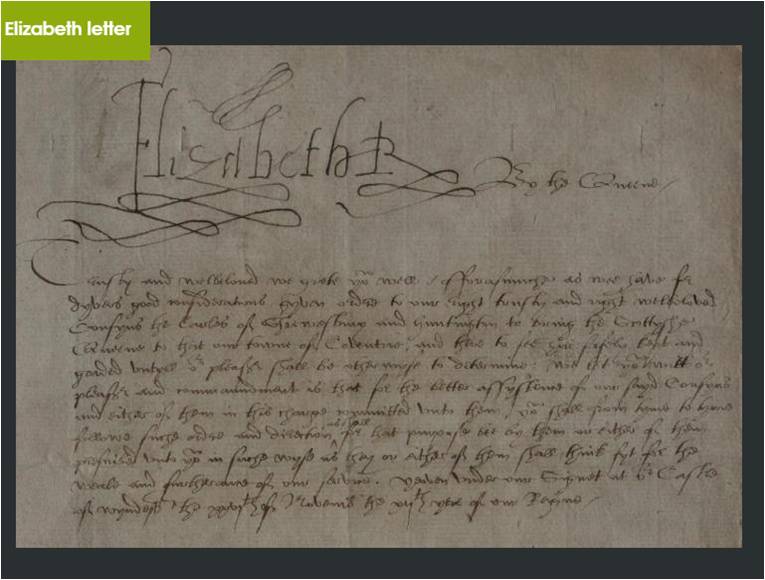 Elizabeth letter
Elizabeth R
By the Quene
Trusty and welbeloved we grete you well / fforasmuche as wee have for
dyvers good considerations gyven ordre to our right trusty and right welbeloved
Cousyns the Earles of Shrewesbury and huntingdon to bring the Scottyshe
Quene to that our towne of Coventree, and thear to see her safely kept and
garded untyll our pleasr shall be otherwyse to determine
pleasr and commandment is that for the better assystence of our sayd Cousyns
and either of them in this charge committed unto them, you shall from tyme to tyme
followe suche ordre and direction as shall for that purpose be by them or either of them
prescribed unto you in suche wyse as they or either of them shall think fyt for the
weale and furtherance of our service. yeven under our Signet at or Castle
of wyndesor the of Novembre the yere of our Reigne